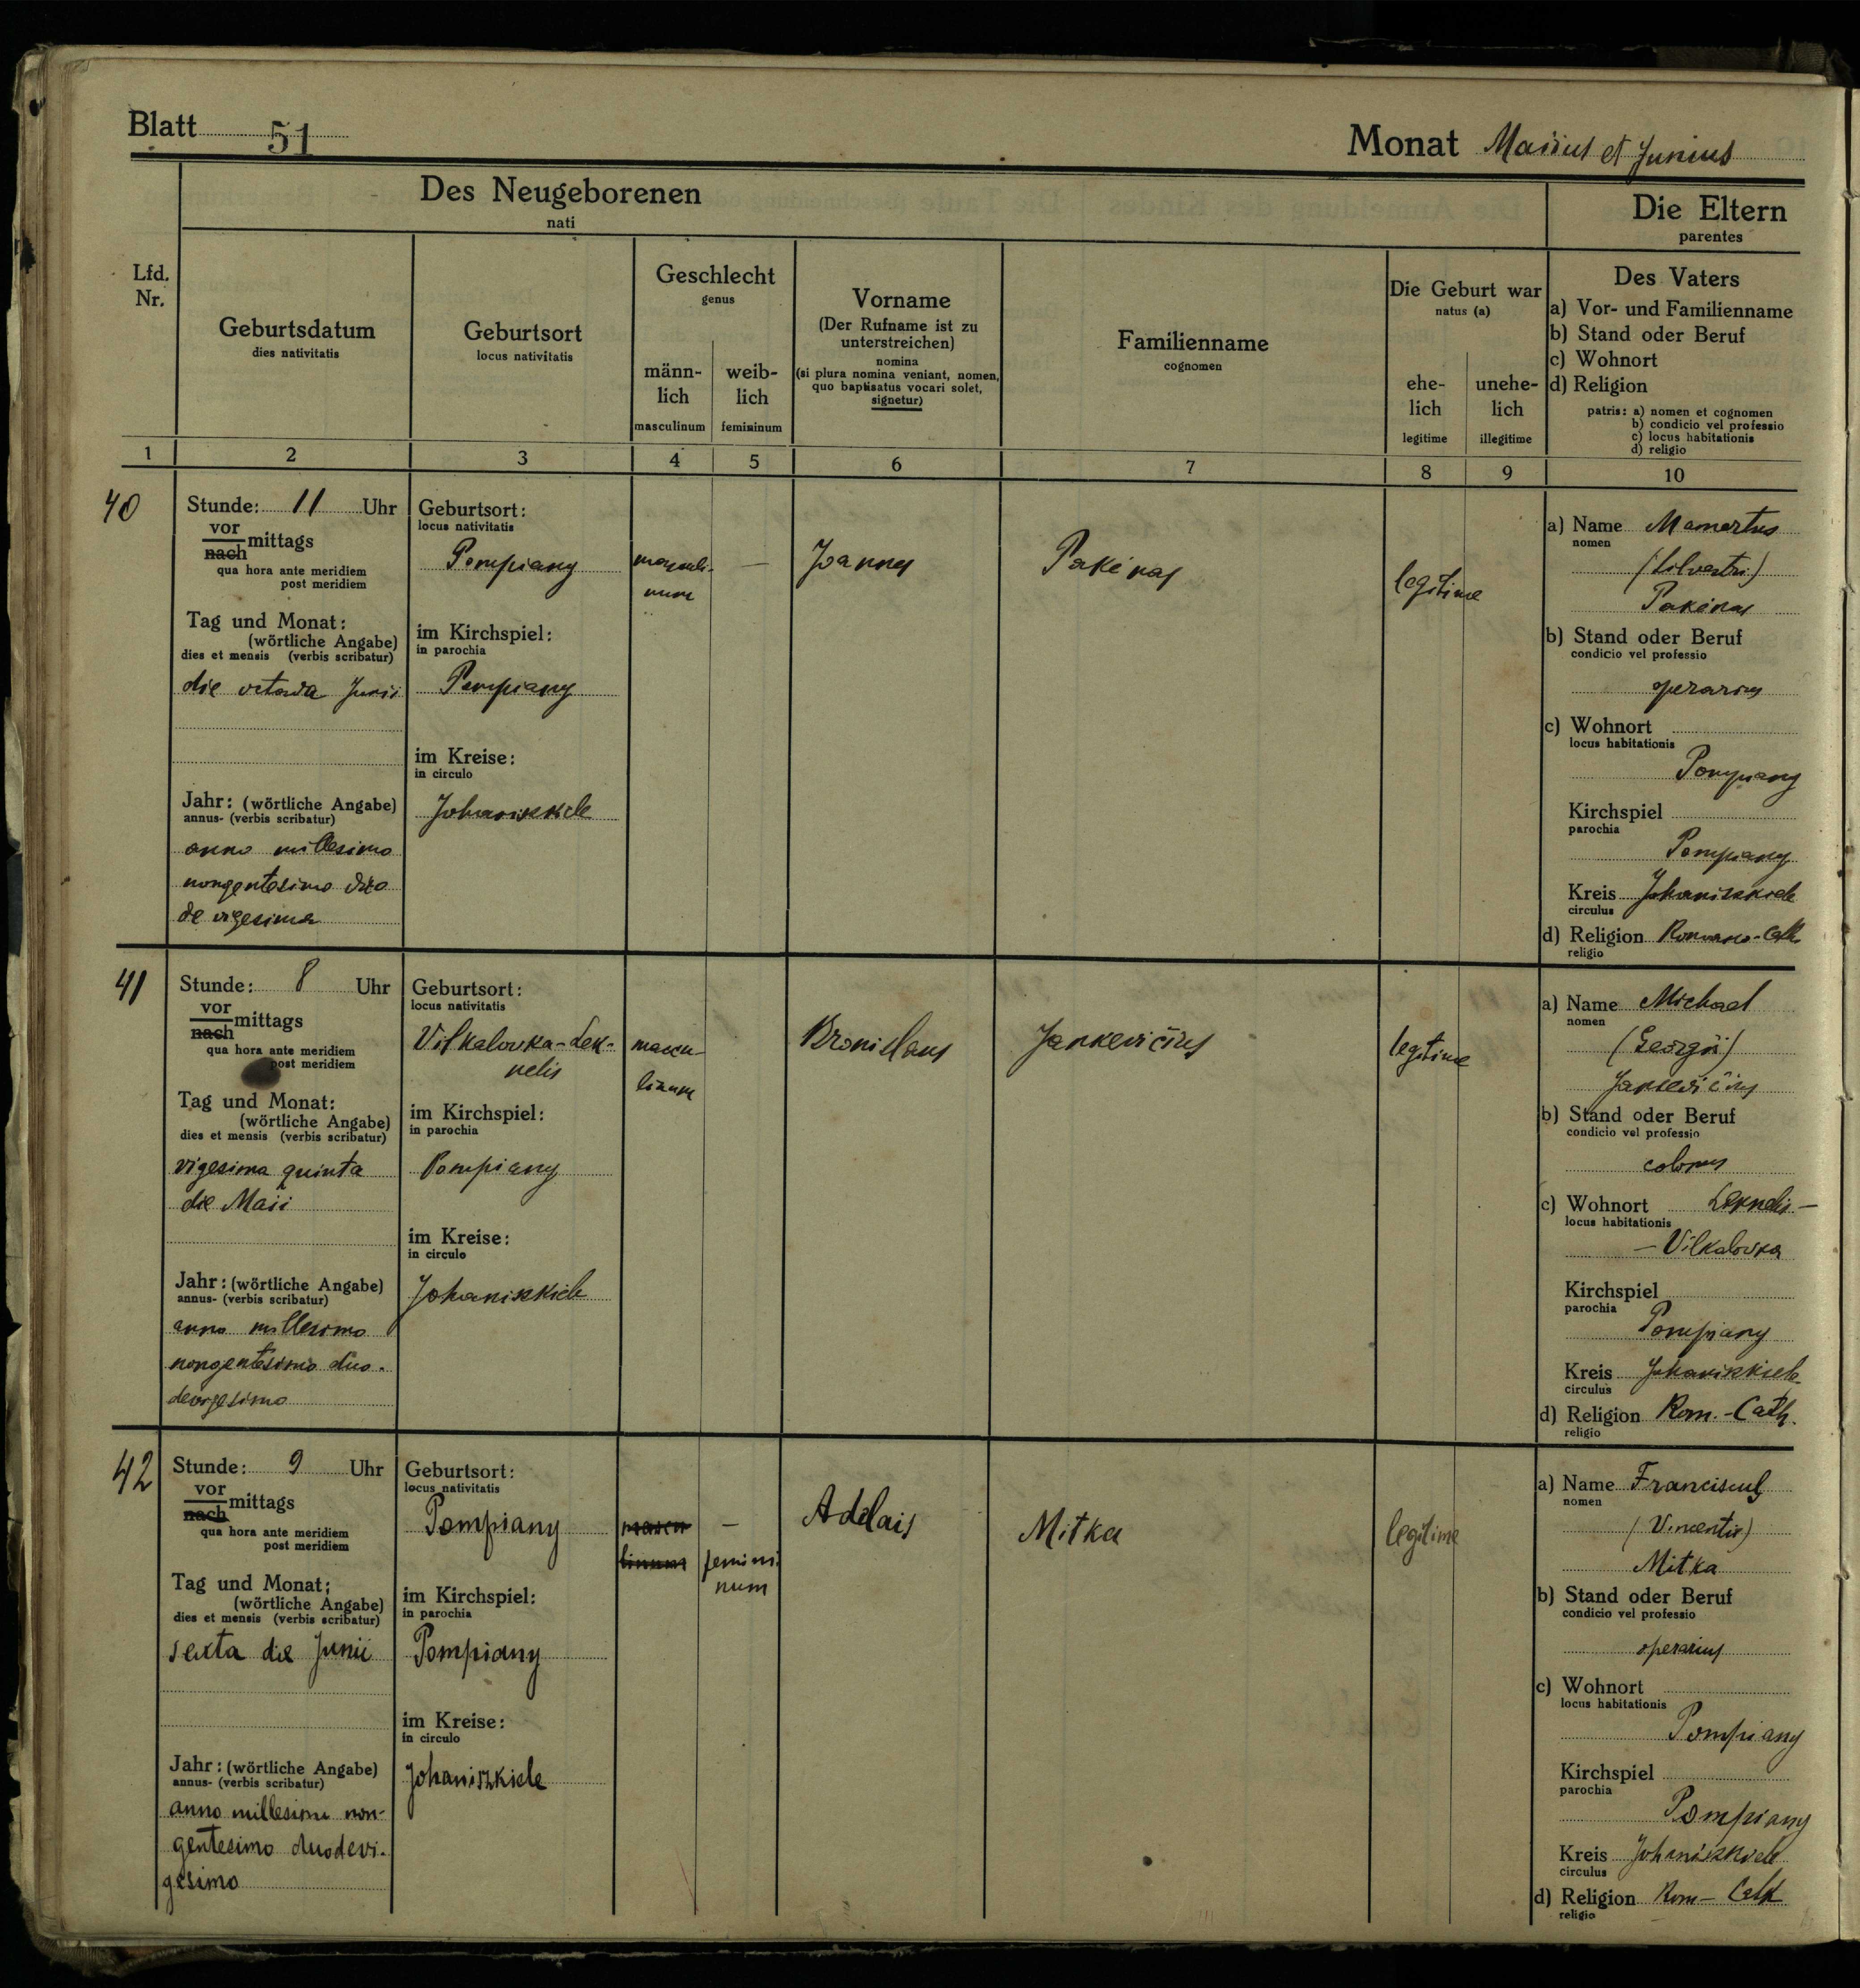 Blatt 51
Monat Maiius et Junius
Des Neugeborenen
nati
Die Eltern
parentes
Lfd.
Nr.
Geburtsdatum
dies nativitatis
Geburtsort
locus nativitatis
Geschlecht
genus
männ-
lich
masculinum
weib-
lich
femininum
Vorname
(Der Rufname ist zu
unterstreichen)
nomina
(si plura nomina veniant, nomen,
quo baptisatus vocari solet,
signetur)
Familienname
cognomen
Die Geburt war
natus (a)
ehe-
lich
legitime
unehe-
lich
illegitime
Des Vaters
a) Vor- und Familienname
b) Stand oder Beruf
c) Wohnort
d) Religion
patris: a) nomen et cognomen
b) condicio vel professio
c) locus habitationis
d) religio
1 2 3 4 5 6 7 8 9 10
40
Stunde: 11 Uhr
vor
nach mittags
qua hora ante meridiem
post meridiem
Tag und Monat:
(wörtliche Angabe)
dies et mensis (verbis scribatur)
die octava Junii
Jahr: (wörtliche Angabe)
annus- (verbis scribatur)
anno millesimo
nongentesimo duo
de vigesimo
Geburtsort:
locus nativitatis
Pompiany
im Kirchspiel:
in parochia
Pompiany
im Kreise:
in circulo
Johaniszkiele
masculi-
num
—
Joannes
Pakėnas
legitime
a) Name Mamertus
nomen
(Silvestri)
Pakėnas
b) Stand oder Beruf
condicio vel professio
operarius
c) Wohnort
locus habitationis
Pompiany
Kirchspiel
parochia
Pompiany
Kreis Johaniszkiele
circulus
d) Religion Romano-Cath.
religio
41
Stunde: 8 Uhr
vor
nach mittags
qua hora ante meridiem
post meridiem
Tag und Monat:
(wörtliche Angabe)
dies et mensis (verbis scribatur)
vigesima quinta
die Maii
Jahr: (wörtliche Angabe)
annus- (verbis scribatur)
anno millesimo
nongentesimo duo-
devigesimo
Geburtsort:
locus nativitatis
Vilkalovka-Lek-
nelis
im Kirchspiel:
in parochia
Pompiany
im Kreise:
in circulo
Johaniszkiele
mascu-
linum
Bronislaus
Jankevičius
legitime
a) Name Michael
nomen
(Georgii)
Jankevičius
b) Stand oder Beruf
condicio vel professio
colonus
c) Wohnort Leknelis-
locus habitationis
-Vilkalovka
Kirchspiel
parochia
Pompiany
Kreis Johaniszkiele
circulus
d) Religion Rom.-Cath.
religio
42
Stunde: 9 Uhr
vor
nach mittags
qua hora ante meridiem
post meridiem
Tag und Monat:
(wörtliche Angabe)
dies et mensis (verbis scribatur)
sexta die Junii
Jahr: (wörtliche Angabe)
annus- (verbis scribatur)
anno millesimo non-
gentesimo duodevi-
gesimo
Geburtsort:
locus nativitatis
Pompiany
im Kirchspiel:
in parochia
Pompiany
im Kreise:
in circulo
Johaniszkiele
mascu
linum
—
femini
num
Adelais
Mitka
legitime
a) Name Franciscus
nomen
(Vincentis)
Mitka
b) Stand oder Beruf
condicio vel professio
operarius
c) Wohnort
locus habitationis
Pompiany
Kirchspiel
parochia
Pompiany
Kreis Johaniszkiele
circulus
d) Religion Rom-Cath
religio